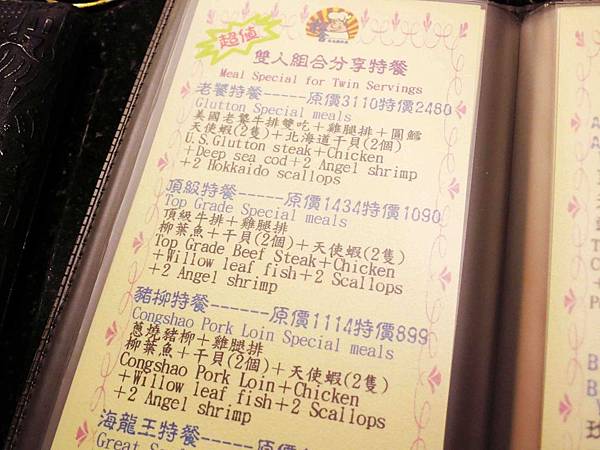 超值
雙人組合分享特餐
Meal Special for Twin Servings
老饕特餐-----原價3110特價2480
Glutton Special meals
美國老饕牛排雙吃+雞腿排+圓鱈
天使蝦(2隻)+北海道干貝(2個)
U.S.Glutton steak+Chicken
+Deep sea cod+2 Angel shrimp
+2 Hokkaido scallops
頂級特餐------原價1434特價1090
Top Grade Special meals
頂級牛排+雞腿排
柳葉魚+干貝(2個)+天使蝦(2隻)
Top Grade Beef Steak+Chicken
+Willow leaf fish+2 Scallops
+2 Angel shrimp
豬柳特餐------原價1114特價899
Congshao Pork Loin Special meals
蔥燒豬柳+雞腿排
柳葉魚+干貝(2個)+天使蝦(2隻)
Congshao Pork Loin+Chicken
+Willow leaf fish+2 Scallops
+2 Angel shrimp
海龍王特餐-----原價
Great